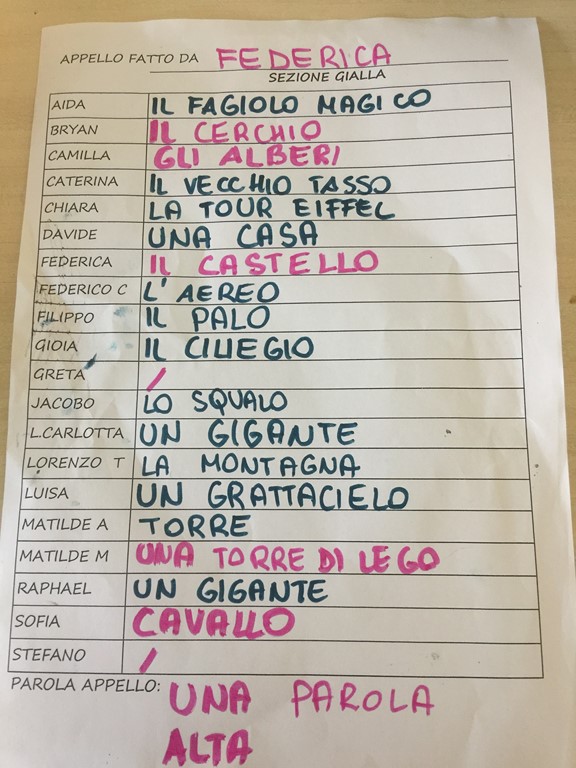 APPELLO FATTO DA FEDERICA
SEZIONE GIALLA
AIDA IL FAGIOLO MAGICO
BRYAN IL CERCHIO
CAMILLA GLI ALBERI
CATERINA IL VECCHIO TASSO
CHIARA LA TOUR EIFFEL
DAVIDE UNA CASA
FEDERICA IL CASTELLO
FEDERICO C L'AEREO
FILIPPO IL PALO
GIOIA IL CILIEGIO
GRETA /
JACOBO LO SQUALO
L.CARLOTTA UN GIGANTE
LORENZO T LA MONTAGNA
LUISA UN GRATTACIELO
MATILDE A TORRE
MATILDE M UNA TORRE DI LEGO
RAPHAEL UN GIGANTE
SOFIA CAVALLO
STEFANO /
PAROLA APPELLO: UNA PAROLA
ALTA